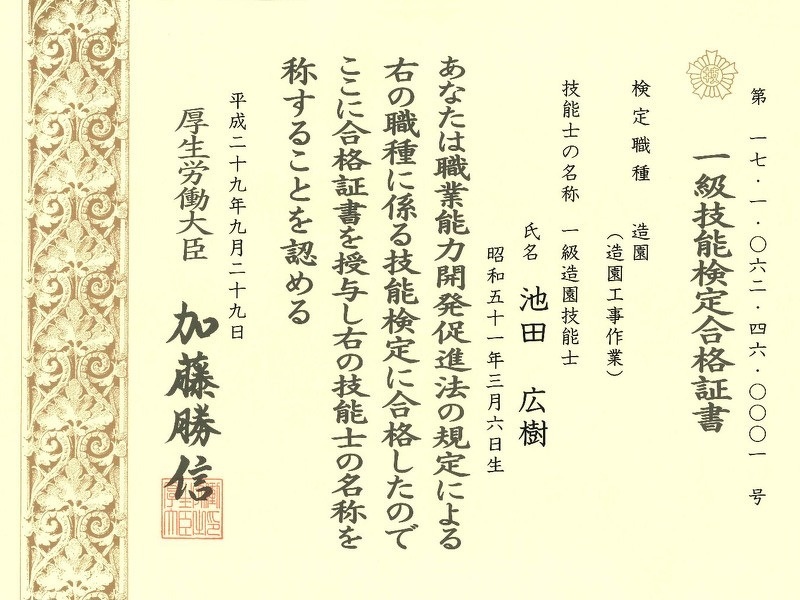 第 一七・一・〇六二・四六・〇〇〇一 号
一級技能検定合格証書
検定職種 造園
（造園工事作業）
技能士の名称 一級造園技能士
氏名 池田 広樹
昭和五十一年三月六日生
あなたは職業能力開発促進法の規定による
右の職種に係る技能検定に合格したので
ここに合格証書を授与し右の技能士の名称を
称することを認める
平成二十九年九月二十九日
厚生労働大臣 加藤勝信